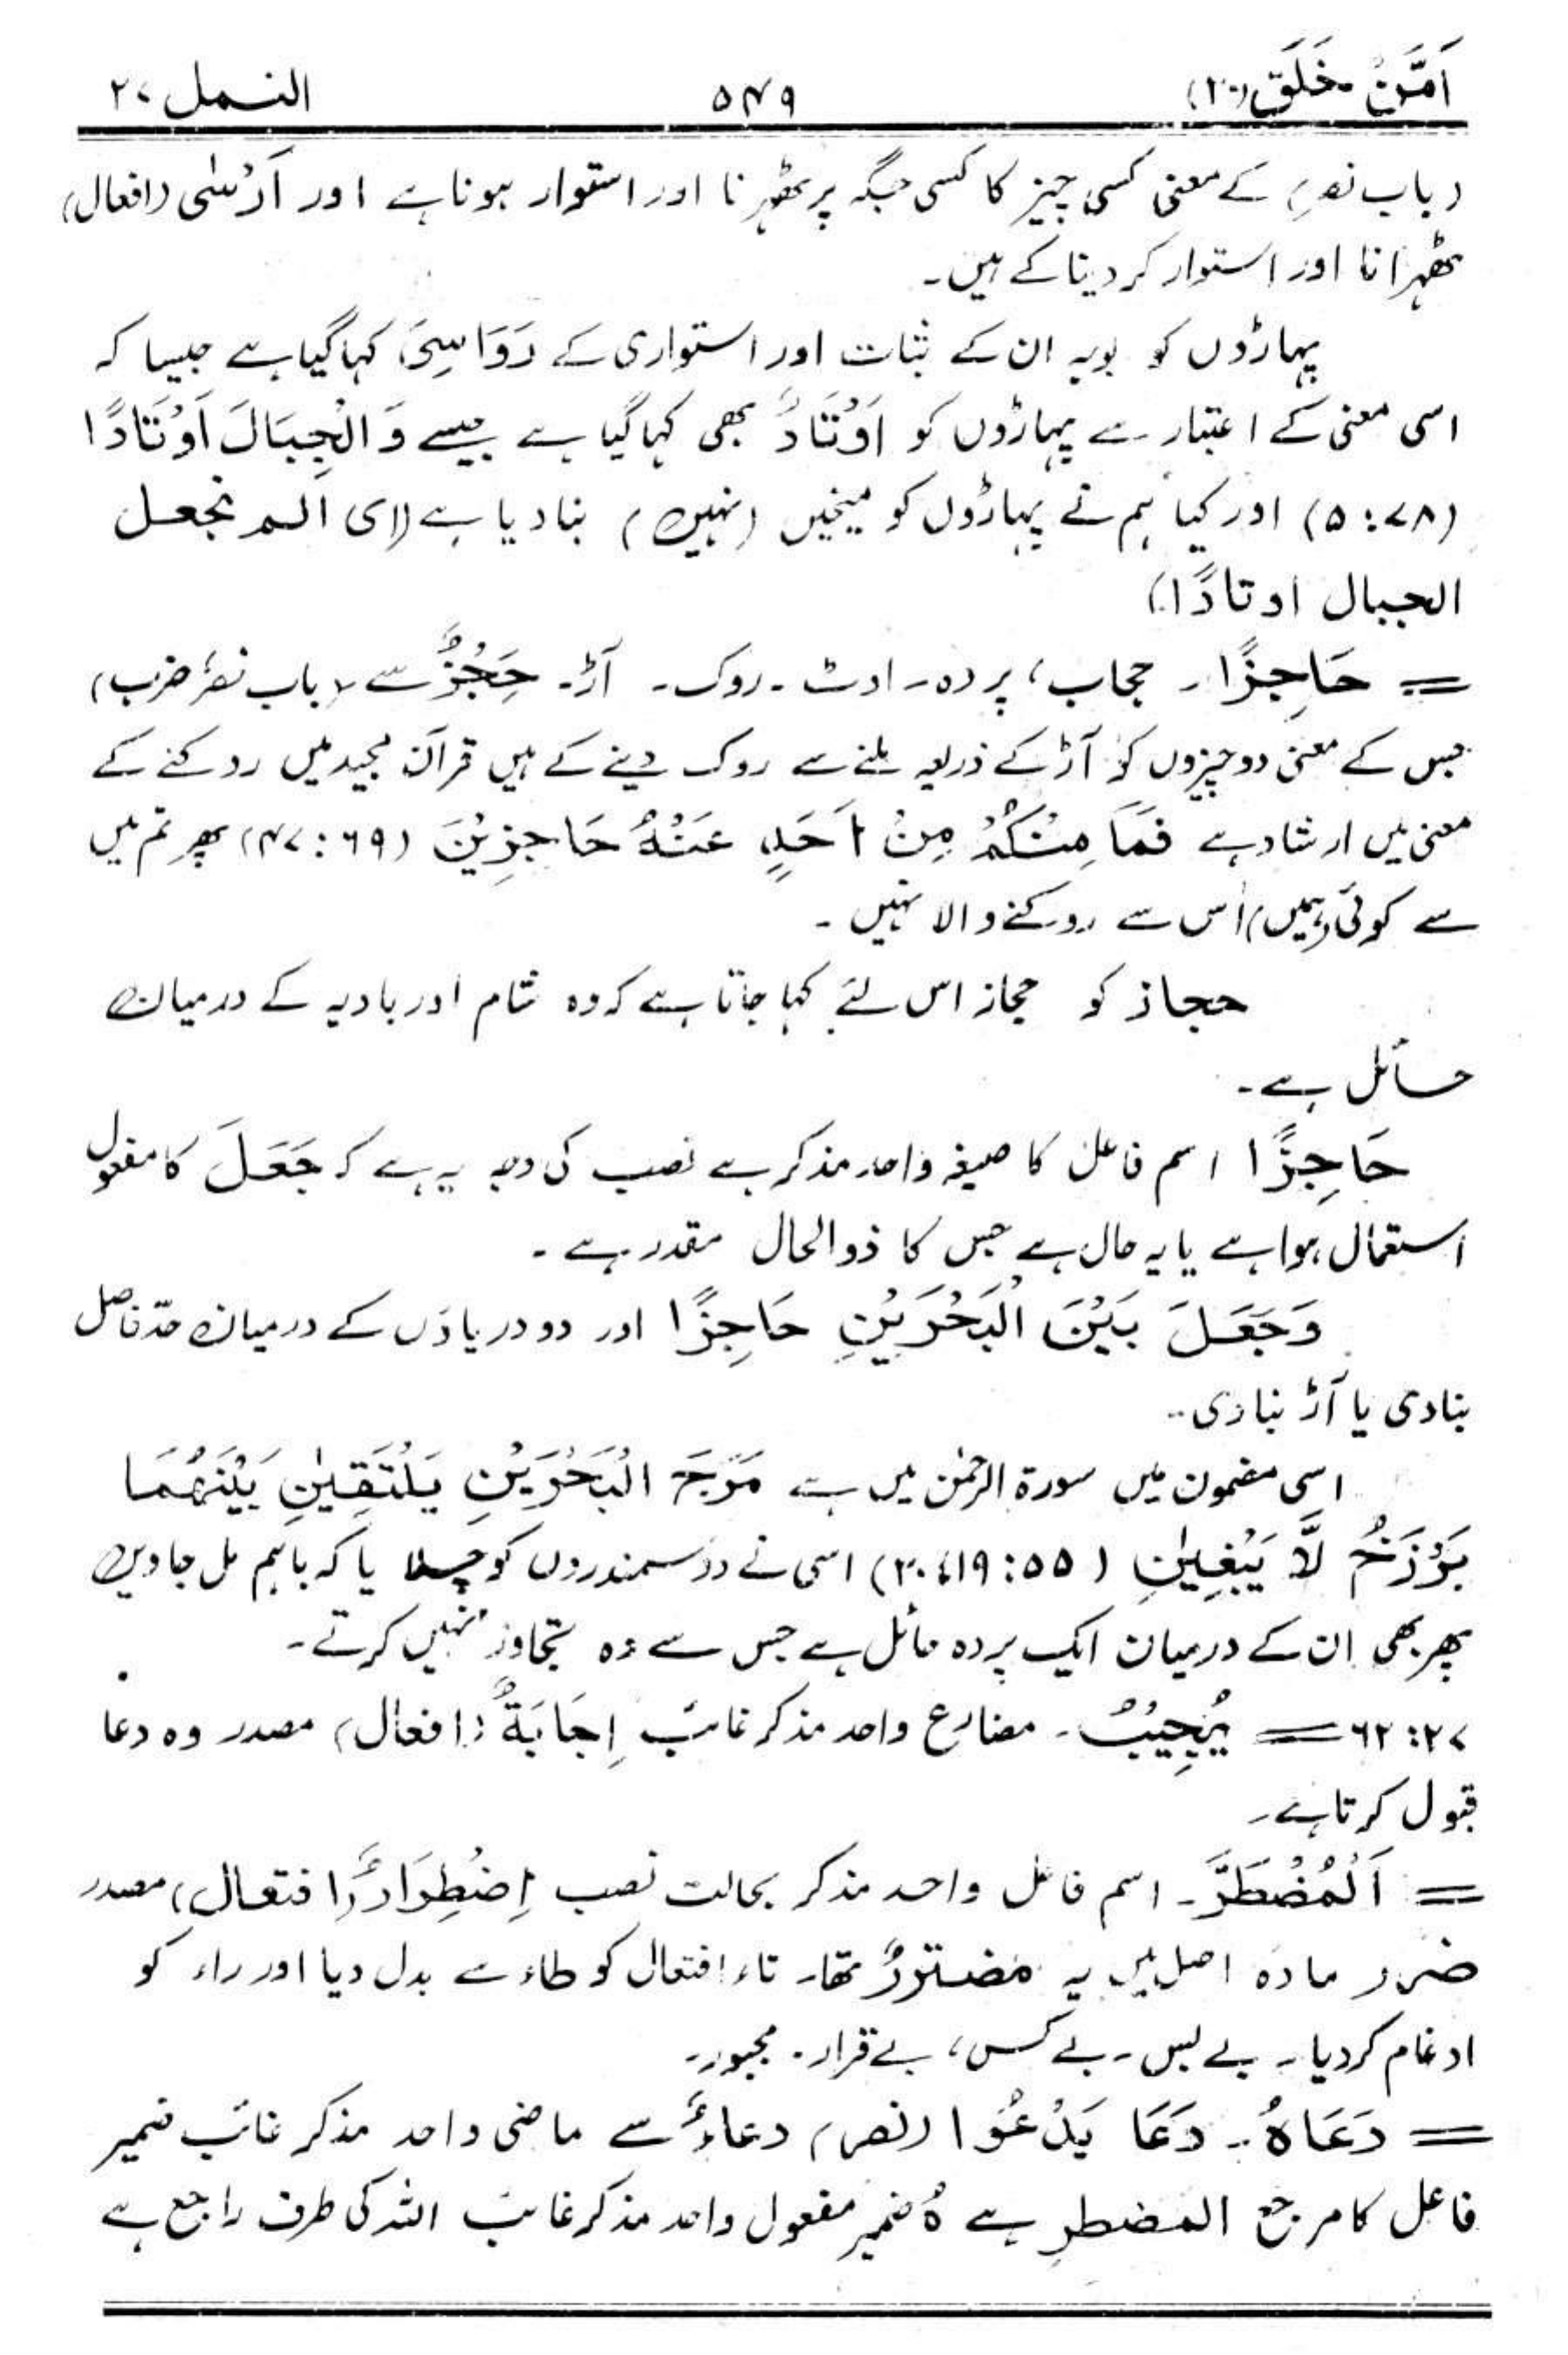 اَمَّنْ خَلَقَ (۲۰) ۵۴۹ النمل ۲۷
(باب نصر) کے معنی کسی چیز کا کسی جگہ پر ٹھہرنا اور استوار ہونا ہے اور اَرْسٰی (افعال)
ٹھہرانا اور استوار کر دینا کے ہیں۔
پہاڑوں کو بوجہ ان کے ثبات اور استواری کے رَوَاسِیَ کہا گیا ہے جیسا کہ
اسی معنی کے اعتبار سے پہاڑوں کو اَوْتَادٌ بھی کہا گیا ہے جیسے وَالْجِبَالَ اَوْتَادًا
(۷۸:۵) اور کیا ہم نے پہاڑوں کو میخیں (نہیں) بنا دیا ہے (ای الم نجعل
الجبال اوتادًا)
= حَاجِزًا۔ حجاب، پردہ۔ اوٹ۔ روک۔ آڑ۔ حَجْزٌ سے (باب نصر، ضرب)
جس کے معنی دو چیزوں کو آڑ کے ذریعہ ملنے سے روک دینے کے ہیں قرآن مجید میں روکنے کے
معنی میں ارشاد ہے فَمَا مِنْكُمْ مِنْ اَحَدٍ عَنْهُ حَاجِزِيْنَ (۶۹:۴۷) پھر تم میں
سے کوئی (ہمیں) اس سے روکنے والا نہیں۔
حجاز کو حجاز اس لئے کہا جاتا ہے کہ وہ شام اور بادیہ کے درمیان
حائل ہے۔
حَاجِزًا اسم فاعل کا صیغہ واحد مذکر ہے نصب کی وجہ یہ ہے کہ جَعَلَ کا مفعول
استعمال ہوا ہے یا یہ حال ہے جس کا ذوالحال مقدر ہے۔
وَجَعَلَ بَيْنَ الْبَحْرَيْنِ حَاجِزًا اور دو دریاؤں کے درمیان حدّ فاصل
بنادی یا آڑ بنا دی۔
اسی مضمون میں سورۃ الرحمٰن میں ہے مَرَجَ الْبَحْرَيْنِ يَلْتَقِيٰنِ بَيْنَهُمَا
بَرْزَخٌ لَّا يَبْغِيٰنِ (۵۵:۱۹، ۲۰) اسی نے دو سمندروں کو چلا یا کہ باہم مل جاویں
پھر بھی ان کے درمیان ایک پردہ حائل ہے جس سے وہ تجاوز نہیں کرتے۔
۲۷:۶۲ = يُجِيْبُ۔ مضارع واحد مذکر غائب اِجَابَةٌ (افعال) مصدر وہ دعا
قبول کرتا ہے۔
= اَلْمُضْطَرَّ۔ اسم فاعل واحد مذکر بحالت نصب اِضْطِرَارٌ (افتعال) مصدر
ضرر مادہ اصل میں یہ مضتررٌ تھا۔ تاء افتعال کو طاء سے بدل دیا اور راء کو
ادغام کردیا۔ بے بس۔ بے کس، بے قرار۔ مجبور۔
= دَعَاهُ۔ دَعَا يَدْعُوْا (نصر) دعاءٌ سے ماضی واحد مذکر غائب ضمیر
فاعل کا مرجع المضطر ہے هُ ضمیر مفعول واحد مذکر غائب اللہ کی طرف راجع ہے